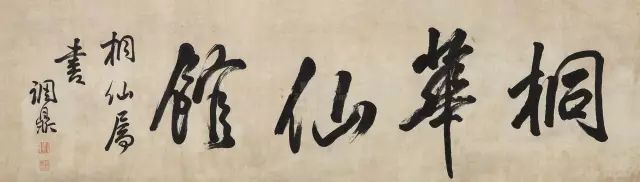 桐華仙館
桐仙屬
書
調鼎